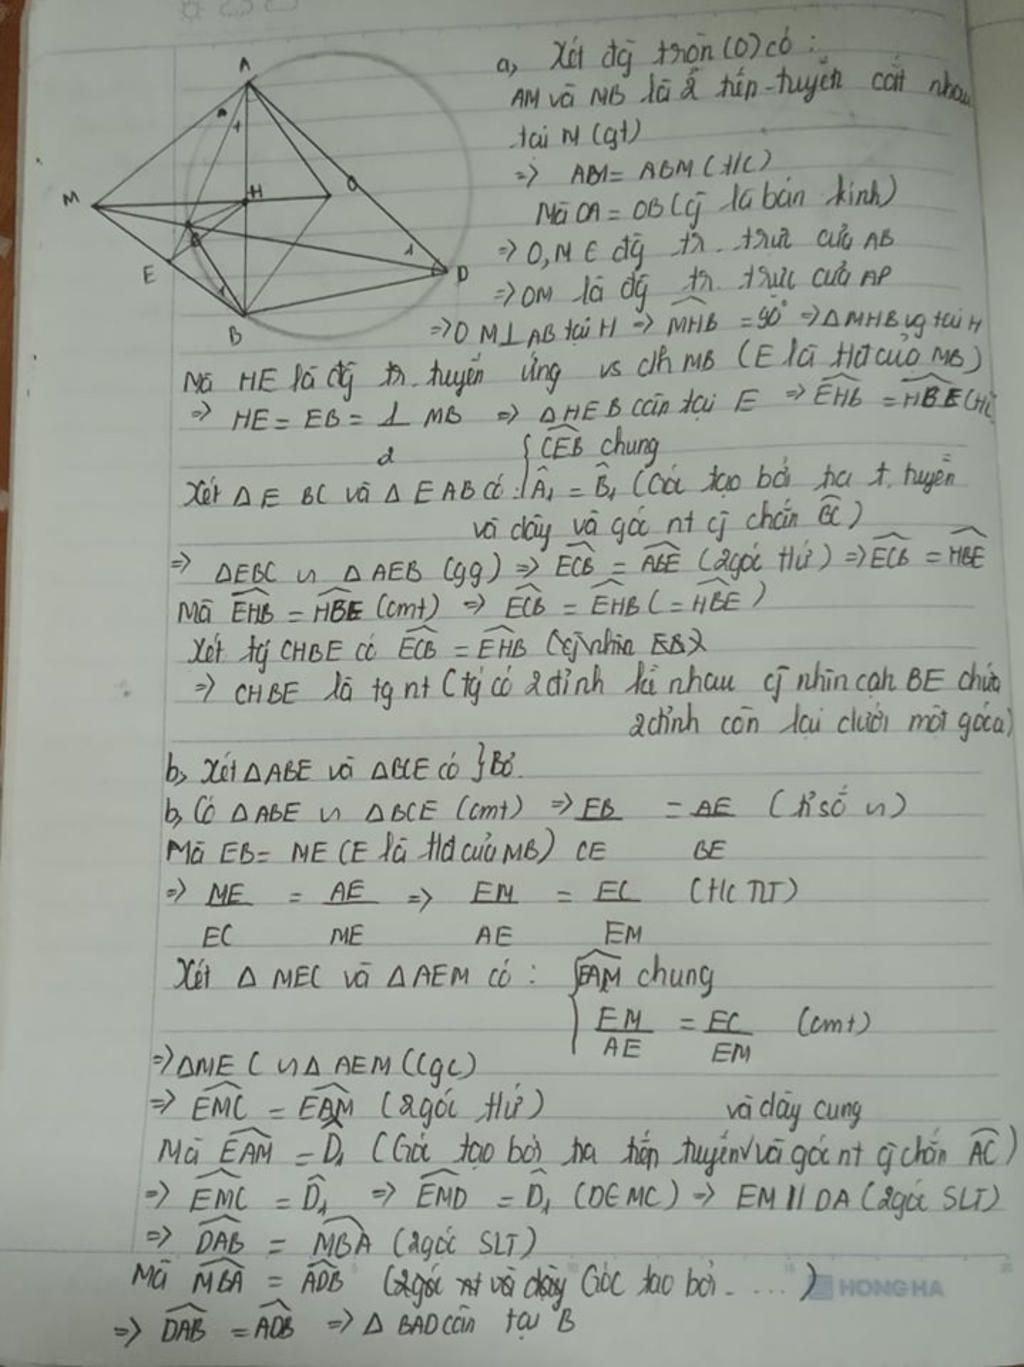 a, Xét đg tròn (O) có :
AM và MB là 2 tiếp tuyến cắt nhau
tại M (gt)
=> AM = BM (t/c)
Mà OA = OB (cj là bán kính)
=> O, M ∈ đg tr. trực cửa AB
=> OM là đg tr. trực cửa AB
=> OM ⊥ AB tại H => MHB = 90° => Δ MHB vg tại H
Mà HE là đg tr. tuyến ứng vs ch MB (E là tđ của MB)
=> HE = EB = 1/2 MB => Δ HEB cân tại E => EHB = HBE (t/c)
{ CEB chung
Xét Δ EBC và Δ EAB có : A1 = B1 (Góc tạo bởi tia t. tuyến
và dây và góc nt cj chắn BC)
=> ΔEBC ∽ ΔAEB (gg) => ECB = ABE (2góc tứ) => ECB = HBE
Mà EHB = HBE (cmt) => ECB = EHB (= HBE)
Xét tg CHBE có ECB = EHB (cj nhìn EB)
=> CHBE là tg nt (tg có 2 đỉnh kề nhau cj nhìn cạh BE chứa
2 đỉnh còn lại dưới một góc α)
b, Xét ΔABE và ΔBCE có } Bỏ.
b, Có ΔABE ∽ ΔBCE (cmt) => EB/CE = AE/BE (tỉ số ∽)
Mà EB = ME (E là tđ của MB)
=> ME/EC = AE/ME => EM/AE = EC/EM (t/c TLT)
Xét Δ MEC và Δ AEM có : { EAM chung
EM/AE = EC/EM (cmt)
=> ΔMEC ∽ Δ AEM (cgc)
=> EMC = EAM (2góc tứ) và dây cung
Mà EAM = D1 (Góc tạo bởi tia tiếp tuyến và góc nt cj chắn AC)
=> EMC = D1 => EMD = D1 (D∈MC) => EM // DA (2góc SLT)
=> DAB = MBA (2góc SLT)
Mà MBA = ADB (2góc nt và dây Góc tạo bởi .....)
=> DAB = ADB => Δ BAD cân tại B
A
M
H
O
E
D
B
1
1
1
HONG HA